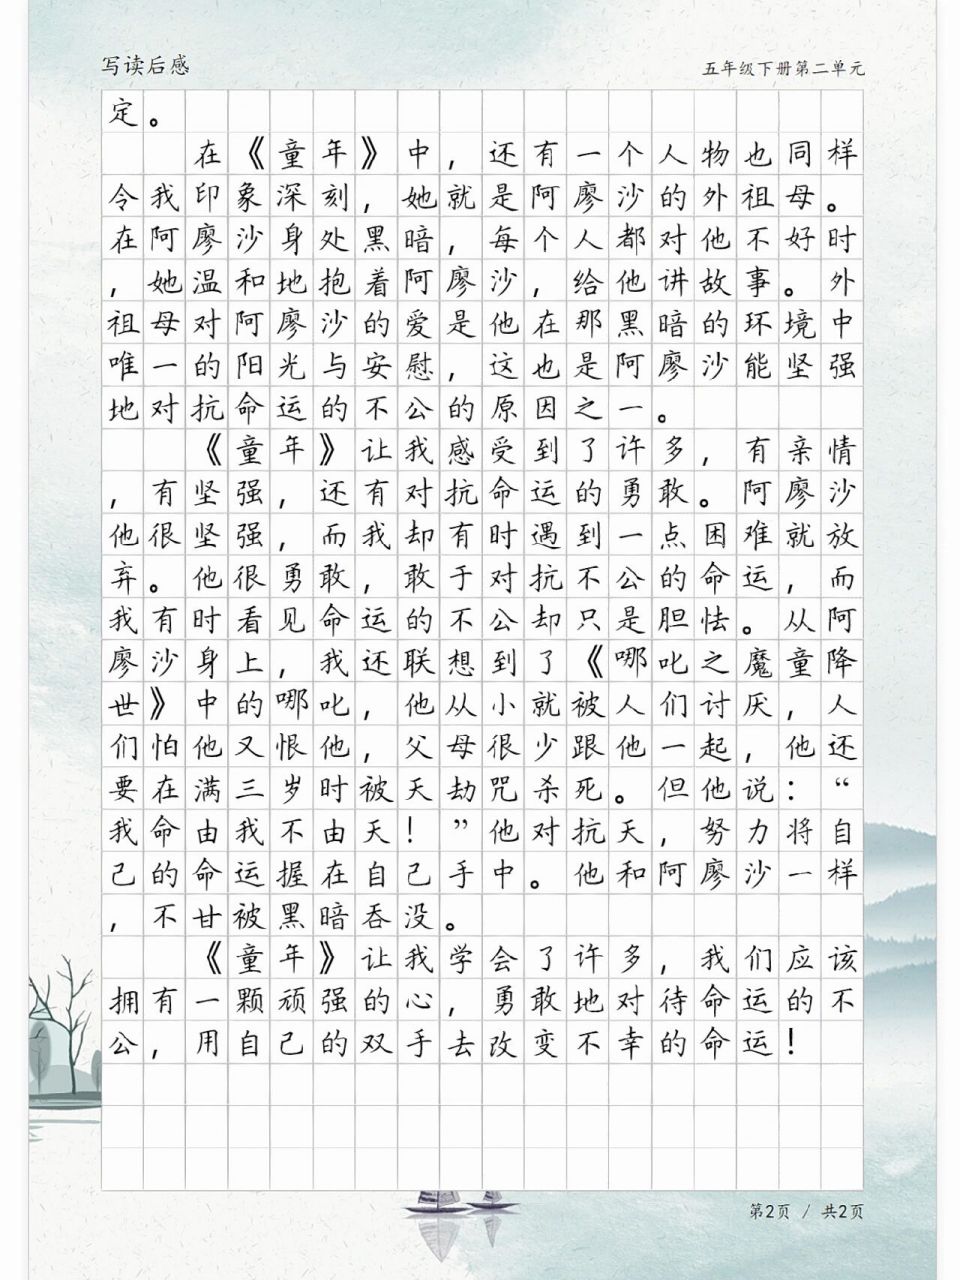 写读后感
五年级下册第二单元
定。
在《童年》中，还有一个人物也同样
令我印象深刻，她就是阿廖沙的外祖母。
在阿廖沙身处黑暗，每个人都对他不好时
，她温和地抱着阿廖沙，给他讲故事。外
祖母对阿廖沙的爱是他在那黑暗的环境中
唯一的阳光与安慰，这也是阿廖沙能坚强
地对抗命运的不公的原因之一。
《童年》让我感受到了许多，有亲情
，有坚强，还有对抗命运的勇敢。阿廖沙
他很坚强，而我却有时遇到一点困难就放
弃。他很勇敢，敢于对抗不公的命运，而
我有时看见命运的不公却只是胆怯。从阿
廖沙身上，我还联想到了《哪叱之魔童降
世》中的哪叱，他从小就被人们讨厌，人
们怕他又恨他，父母很少跟他一起，他还
要在满三岁时被天劫咒杀死。但他说：“
我命由我不由天！”他对抗天，努力将自
己的命运握在自己手中。他和阿廖沙一样
，不甘被黑暗吞没。
《童年》让我学会了许多，我们应该
拥有一颗顽强的心，勇敢地对待命运的不
公，用自己的双手去改变不幸的命运！
第2页 / 共2页